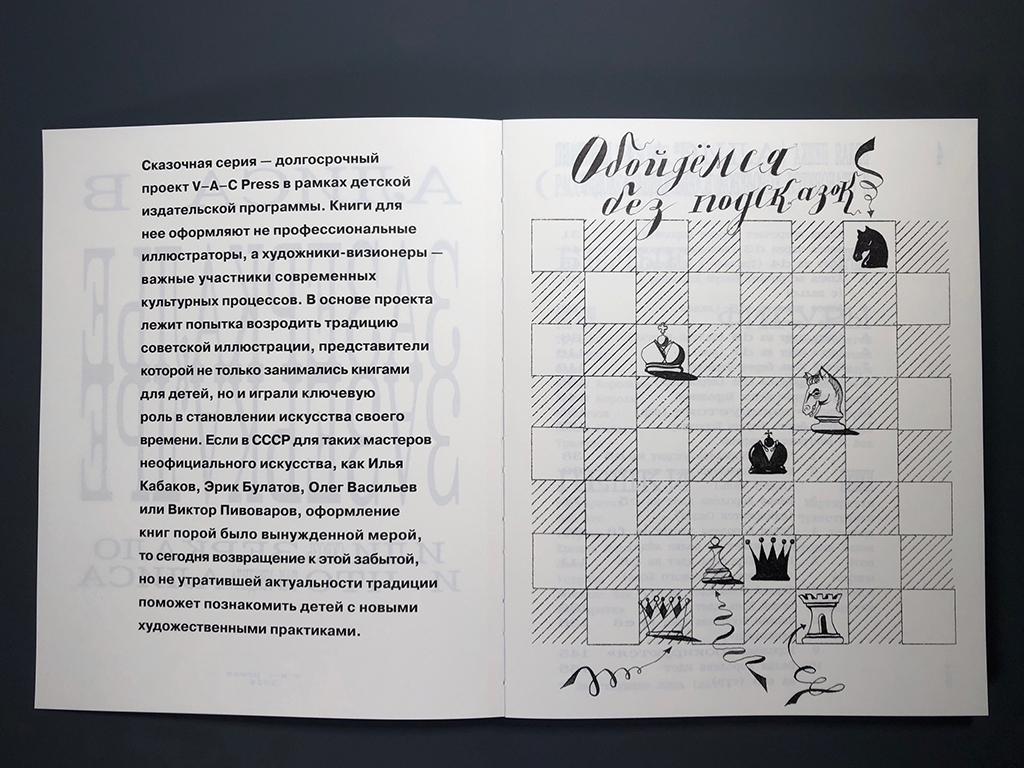 Сказочная серия — долгосрочный
проект V–A–C Press в рамках детской
издательской программы. Книги для
нее оформляют не профессиональные
иллюстраторы, а художники-визионеры —
важные участники современных
культурных процессов. В основе проекта
лежит попытка возродить традицию
советской иллюстрации, представители
которой не только занимались книгами
для детей, но и играли ключевую
роль в становлении искусства своего
времени. Если в СССР для таких мастеров
неофициального искусства, как Илья
Кабаков, Эрик Булатов, Олег Васильев
или Виктор Пивоваров, оформление
книг порой было вынужденной мерой,
то сегодня возвращение к этой забытой,
но не утратившей актуальности традиции
поможет познакомить детей с новыми
художественными практиками.
Обойдёмся
без подсказок